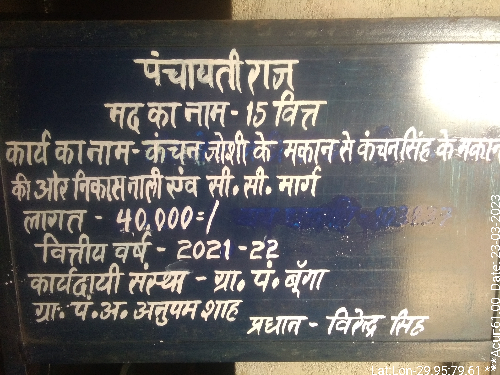 पंचायती राज
मद का नाम - 15 वित्त
कार्य का नाम - कंचन जोशी के मकान से कंचनसिंह के मकान
की ओर निकास नाली एंव सी. सी. मार्ग
लागत - 40,000=/
वित्तीय वर्ष - 2021-22
कार्यदायी संस्था - ग्रा. पं. बूँगा
ग्रा. पं. अ. अनुपम शाह
प्रधान - विरेन्द्र सिंह
Lat Lon-29.95:79.61 ***Acur:61.00 Date: 23-03-2023